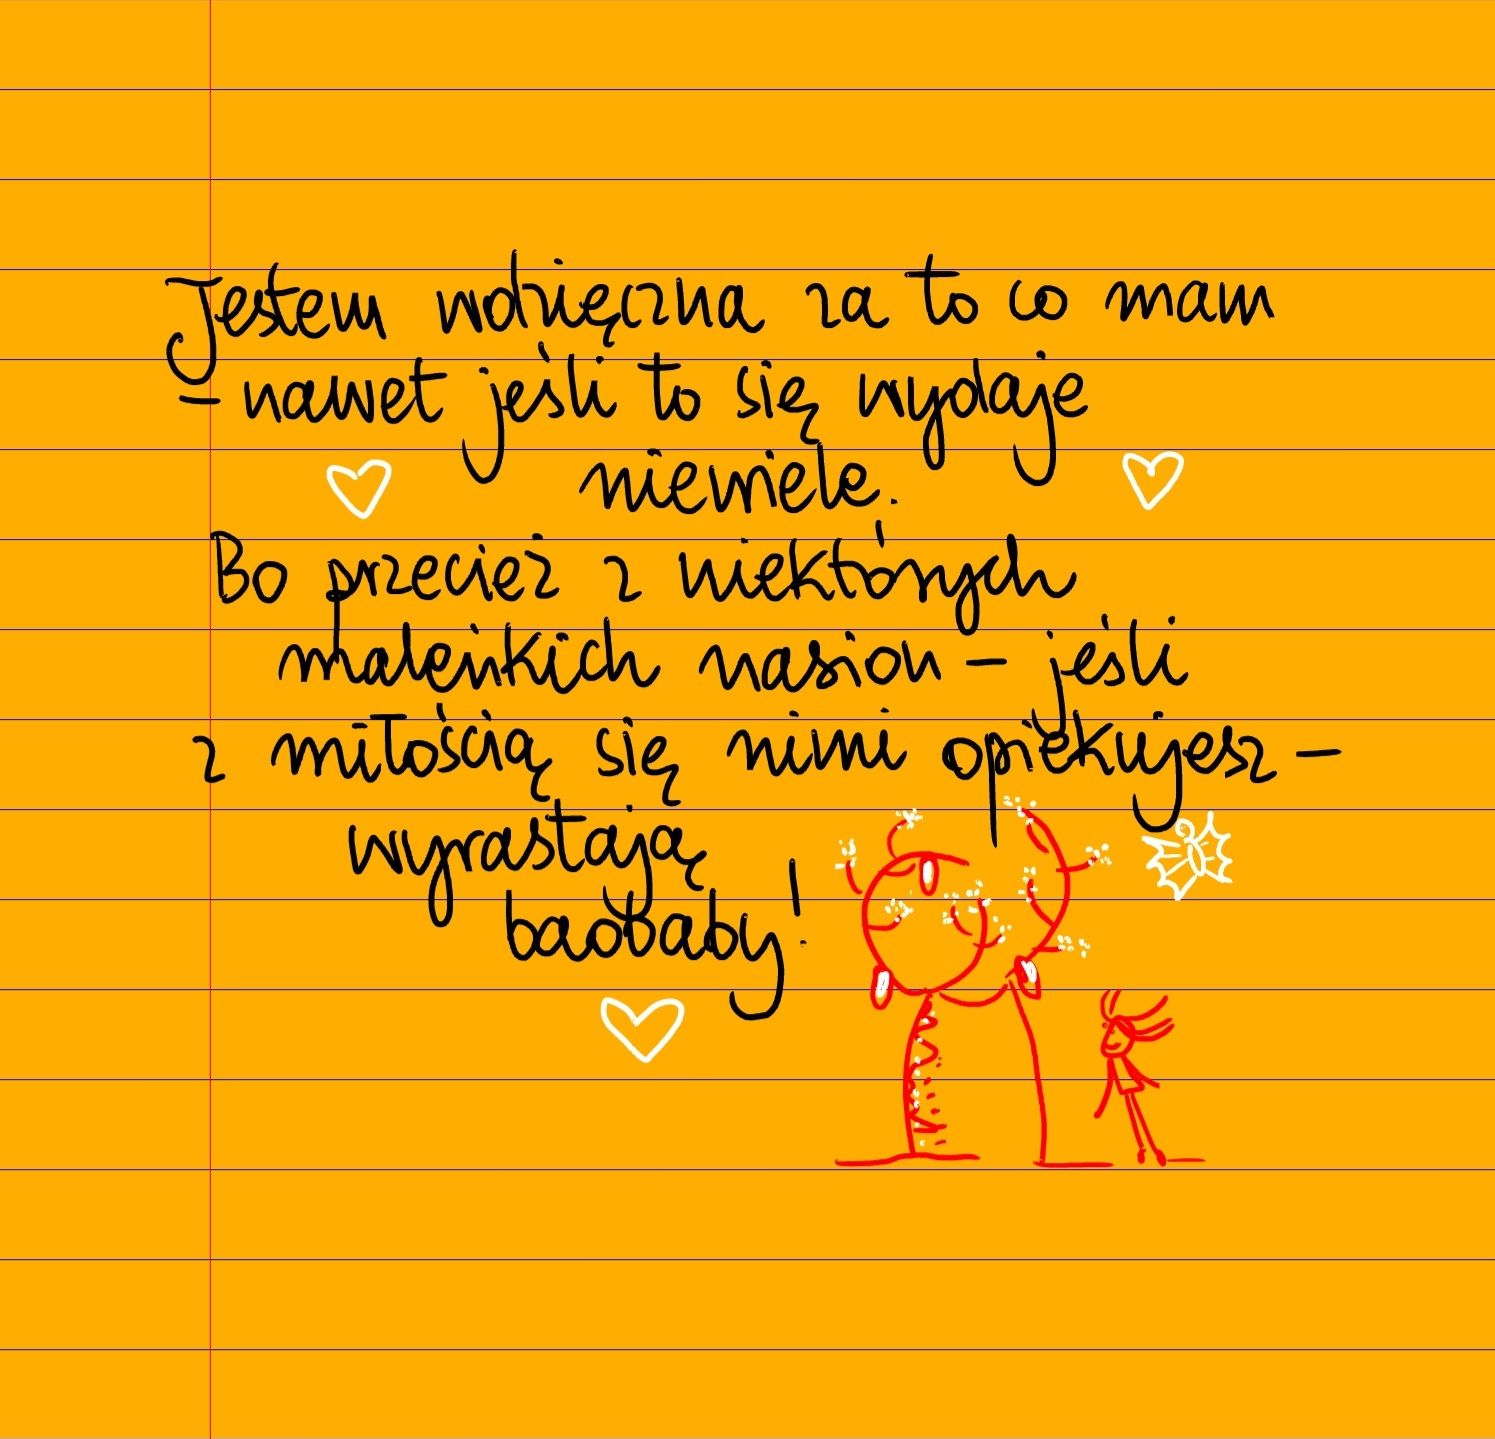 Jestem wdzięczna za to co mam
- nawet jeśli to się wydaje
niewiele.
Bo przecież z niektórych
maleńkich nasion - jeśli
z miłością się nimi opiekujesz -
wyrastają
baobaby!